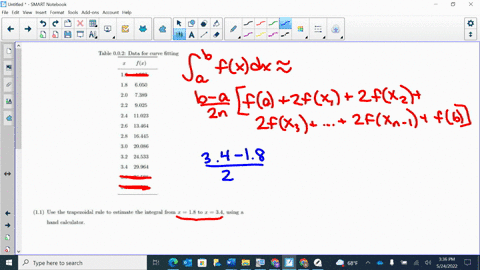 Untitled * - SMART Notebook
File Edit View Insert Format Tools Add-ons Account Help
Table 0.0.2: Data for curve fitting
x f(x)
1.8 6.050
2.0 7.389
2.2 9.025
2.4 11.023
2.6 13.464
2.8 16.445
3.0 20.086
3.2 24.533
3.4 29.964
∫_a^b f(x)dx ≈
b-a/2n [f(a) + 2f(x₁) + 2f(x₂) +
2f(x₃) + ... + 2f(xₙ₋₁) + f(b)]
3.4 - 1.8
2
(1.1) Use the trapezoidal rule to estimate the integral from x = 1.8 to x = 3.4, using a
hand calculator.
68°F
3:36 PM
5/24/2022